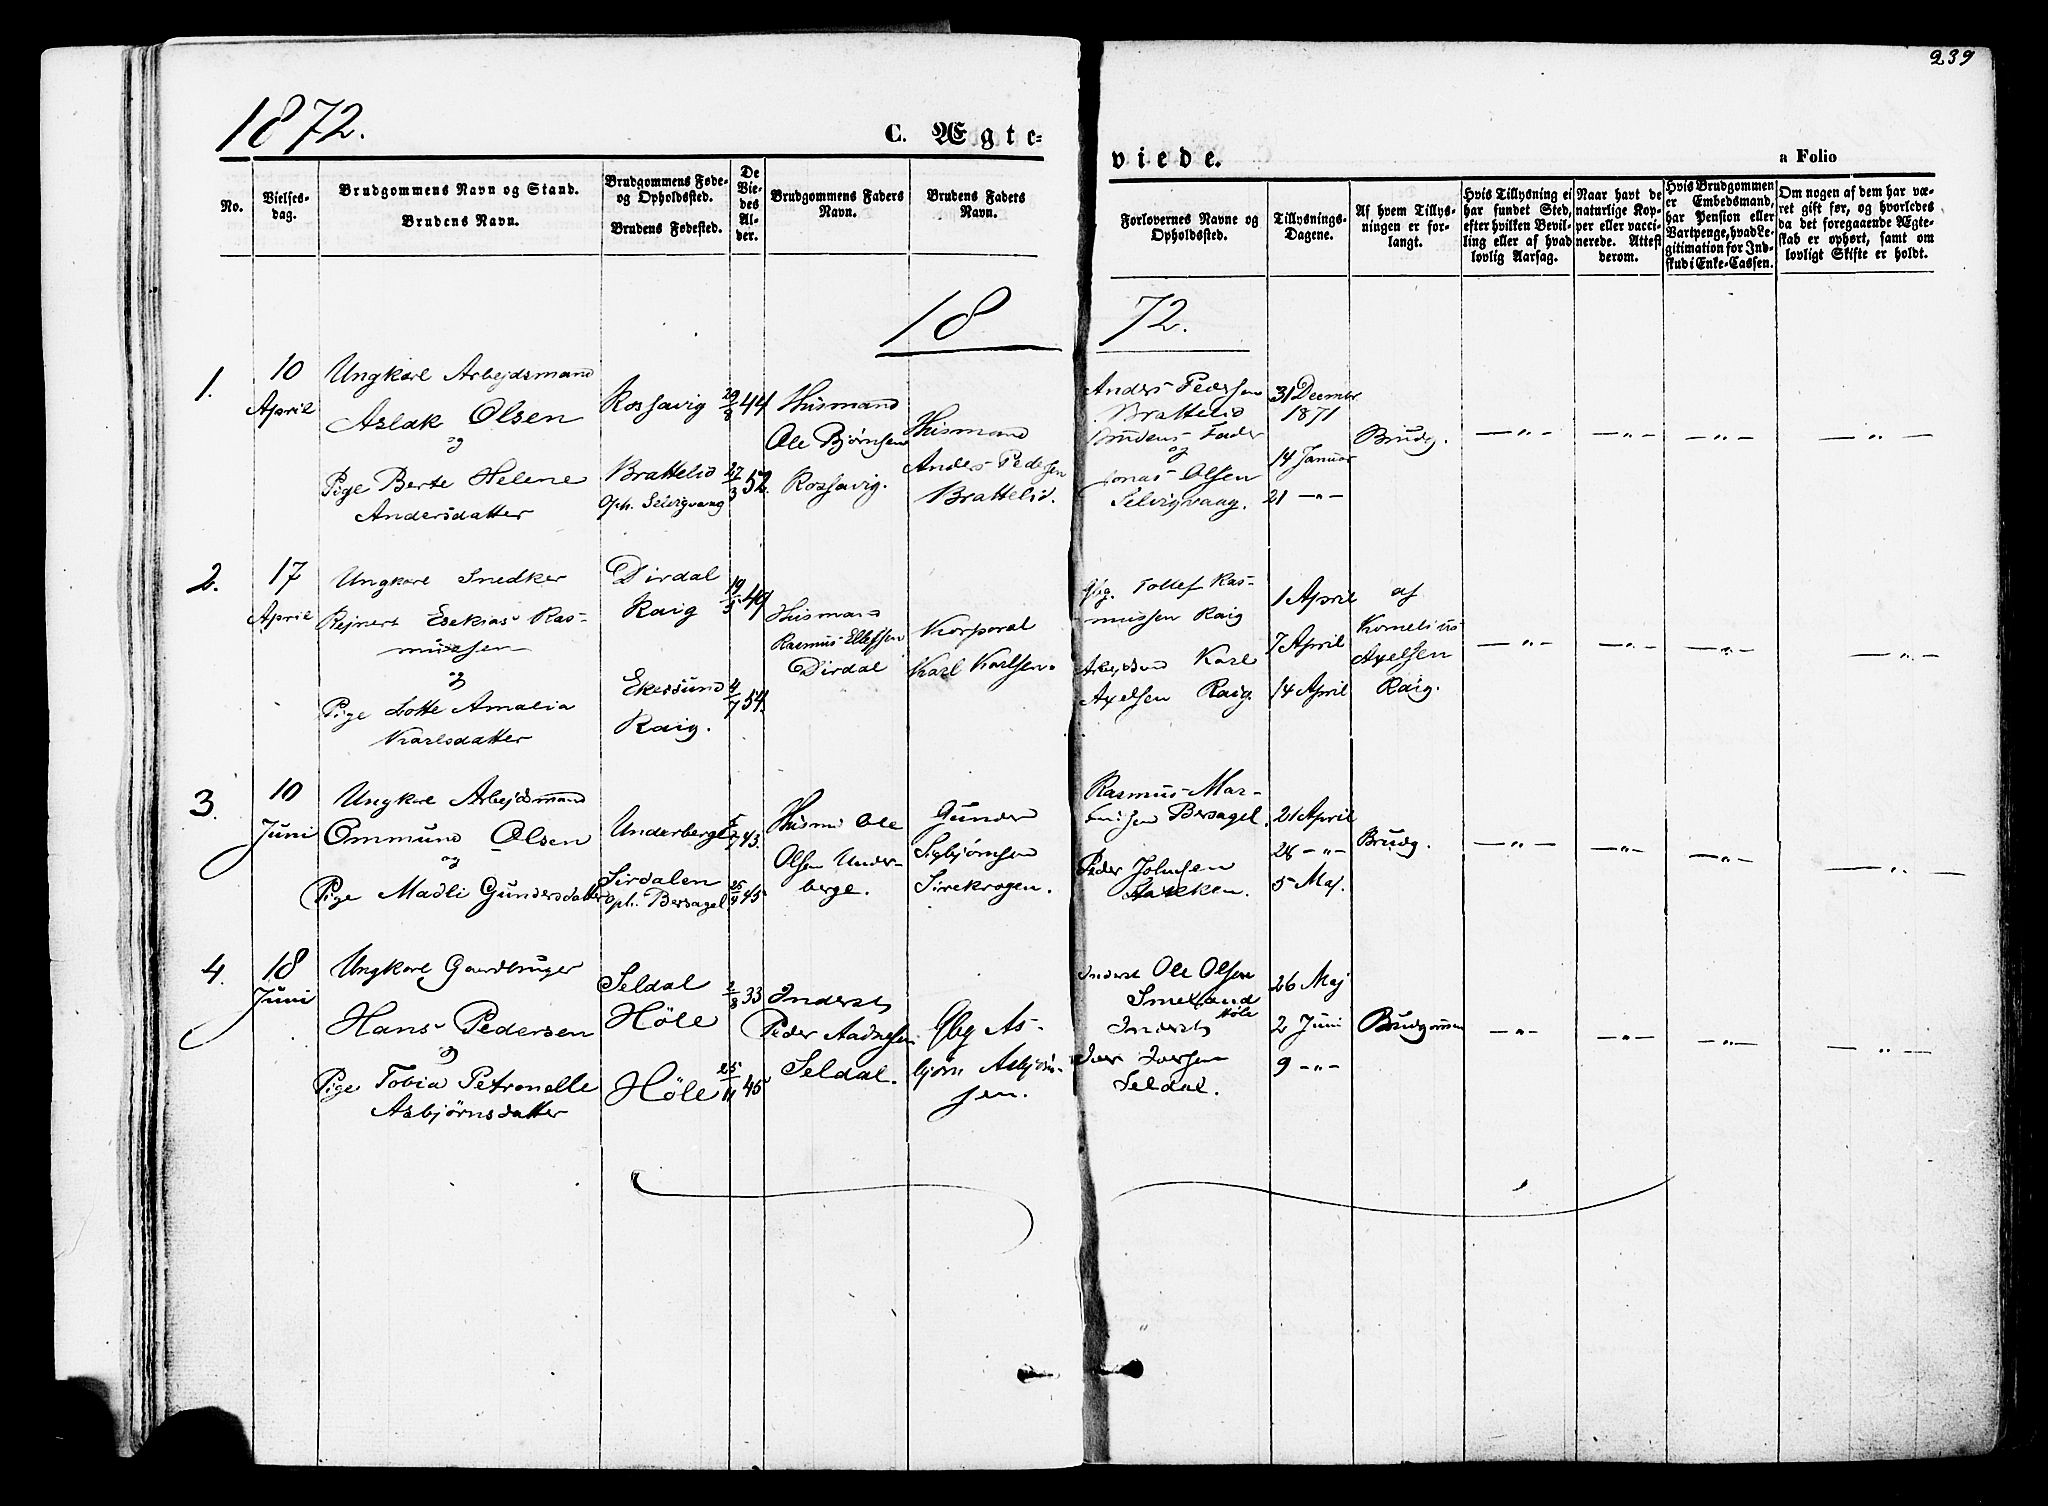 239
1872.
C. Ægte-
viede.
a Folio
No.
Vielses-
dag.
Brudgommens Navn og Stand.
Brudens Navn.
Brudgommens Føde-
og Opholdssted.
Brudens Fødested.
De
Vie-
des
Al-
der.
Brudgommens Faders
Navn.
Brudens Faders
Navn.
Forlovernes Navne og
Opholdssted.
Tillysnings-
Dagene.
Af hvem Tillys-
ningen er for-
langt.
Hvis Tillysning ei
har fundet Sted,
efter hvilken Bevil-
ling eller af hvad
lovlig Aarsag.
Naar havt de
naturlige Kop-
per eller vacci-
nerede. Attest
derom.
Hvis Brudgommen
er Embedsmand,
har Pension eller
Vartpenge, hvad Le-
gitimation for Ind-
skud i Enke-Cassen.
Om nogen af dem har væ-
ret gift før, og hvorledes
da det foregaaende Ægte-
skab er ophørt, samt om
lovligt Skifte er holdt.
18 72.
1.
10
April
Ungkarl Arbejdsmand
Aslak Olsen
og
Pige Berte Helene
Andersdatter
Rossavig
Brattelid
Oph. Selvigvaag
29/8 44
27/3 52.
Husmand
Ole Bjørnsen
Rossavig.
Husmand
Anders Pedersen
Brattelid.
Anders Pedersen
Brattelid
Brudens Fader
og
Jonas Olsen
Selvigvaag.
31 Decembr
1871
14 Januar
21 -"-
Brudg.
-"- -"- -"- -"-
2.
17
April
Ungkarl Snedker
Rejnert Esekias Ras-
mussen
og
Pige Lotte Amalia
Karlsdatter
Dirdal
Raig
Ekersund
Raig.
19/5 49
4/7 54.
Husmand
Rasmus Ellefsen
Dirdal
Korporal
Karl Karlsen.
Gbg. Tollef Ras-
mussen Raig
Arbejdsmd Karl
Axelsen Raig.
1 April
7 April
14 April
af
Kornelius
Axelsen
Raig.
-"- -"- -"- -"-
3.
10
Juni
Ungkarl Arbejdsmand
Ommund Olsen
og
Pige Madli Gundersdatter
Underberge
Sirdalen
oph. Bersagel
5/7 43.
25/9 45
Husm. Ole
Olsen Under-
berge.
Gunder
Sigbjørnsen
Sirekrogen.
Rasmus Mar-
tinsen Bersagel.
Peder Johnsen
21 April
28 -"-
5 Maj.
Brudg.
-"- -"- -"- -"-
4.
18
Juni
Ungkarl Gaardbruger
Hans Pedersen
og
Pige Tobia Petronelle
Asbjørnsdatter
Seldal
Höle
Höle
2/8 33
25/11 45
Inderst
Peder Aadnesen
Seldal.
Gbg As-
bjørn Asbjørn-
sen.
Inderst Ole Olsen
Smeland
Höle
Inderst
Iver Iversen
Seldal.
26 Maj
2 Juni
9 -"-
Brudgommen
-"- -"- -"- -"-